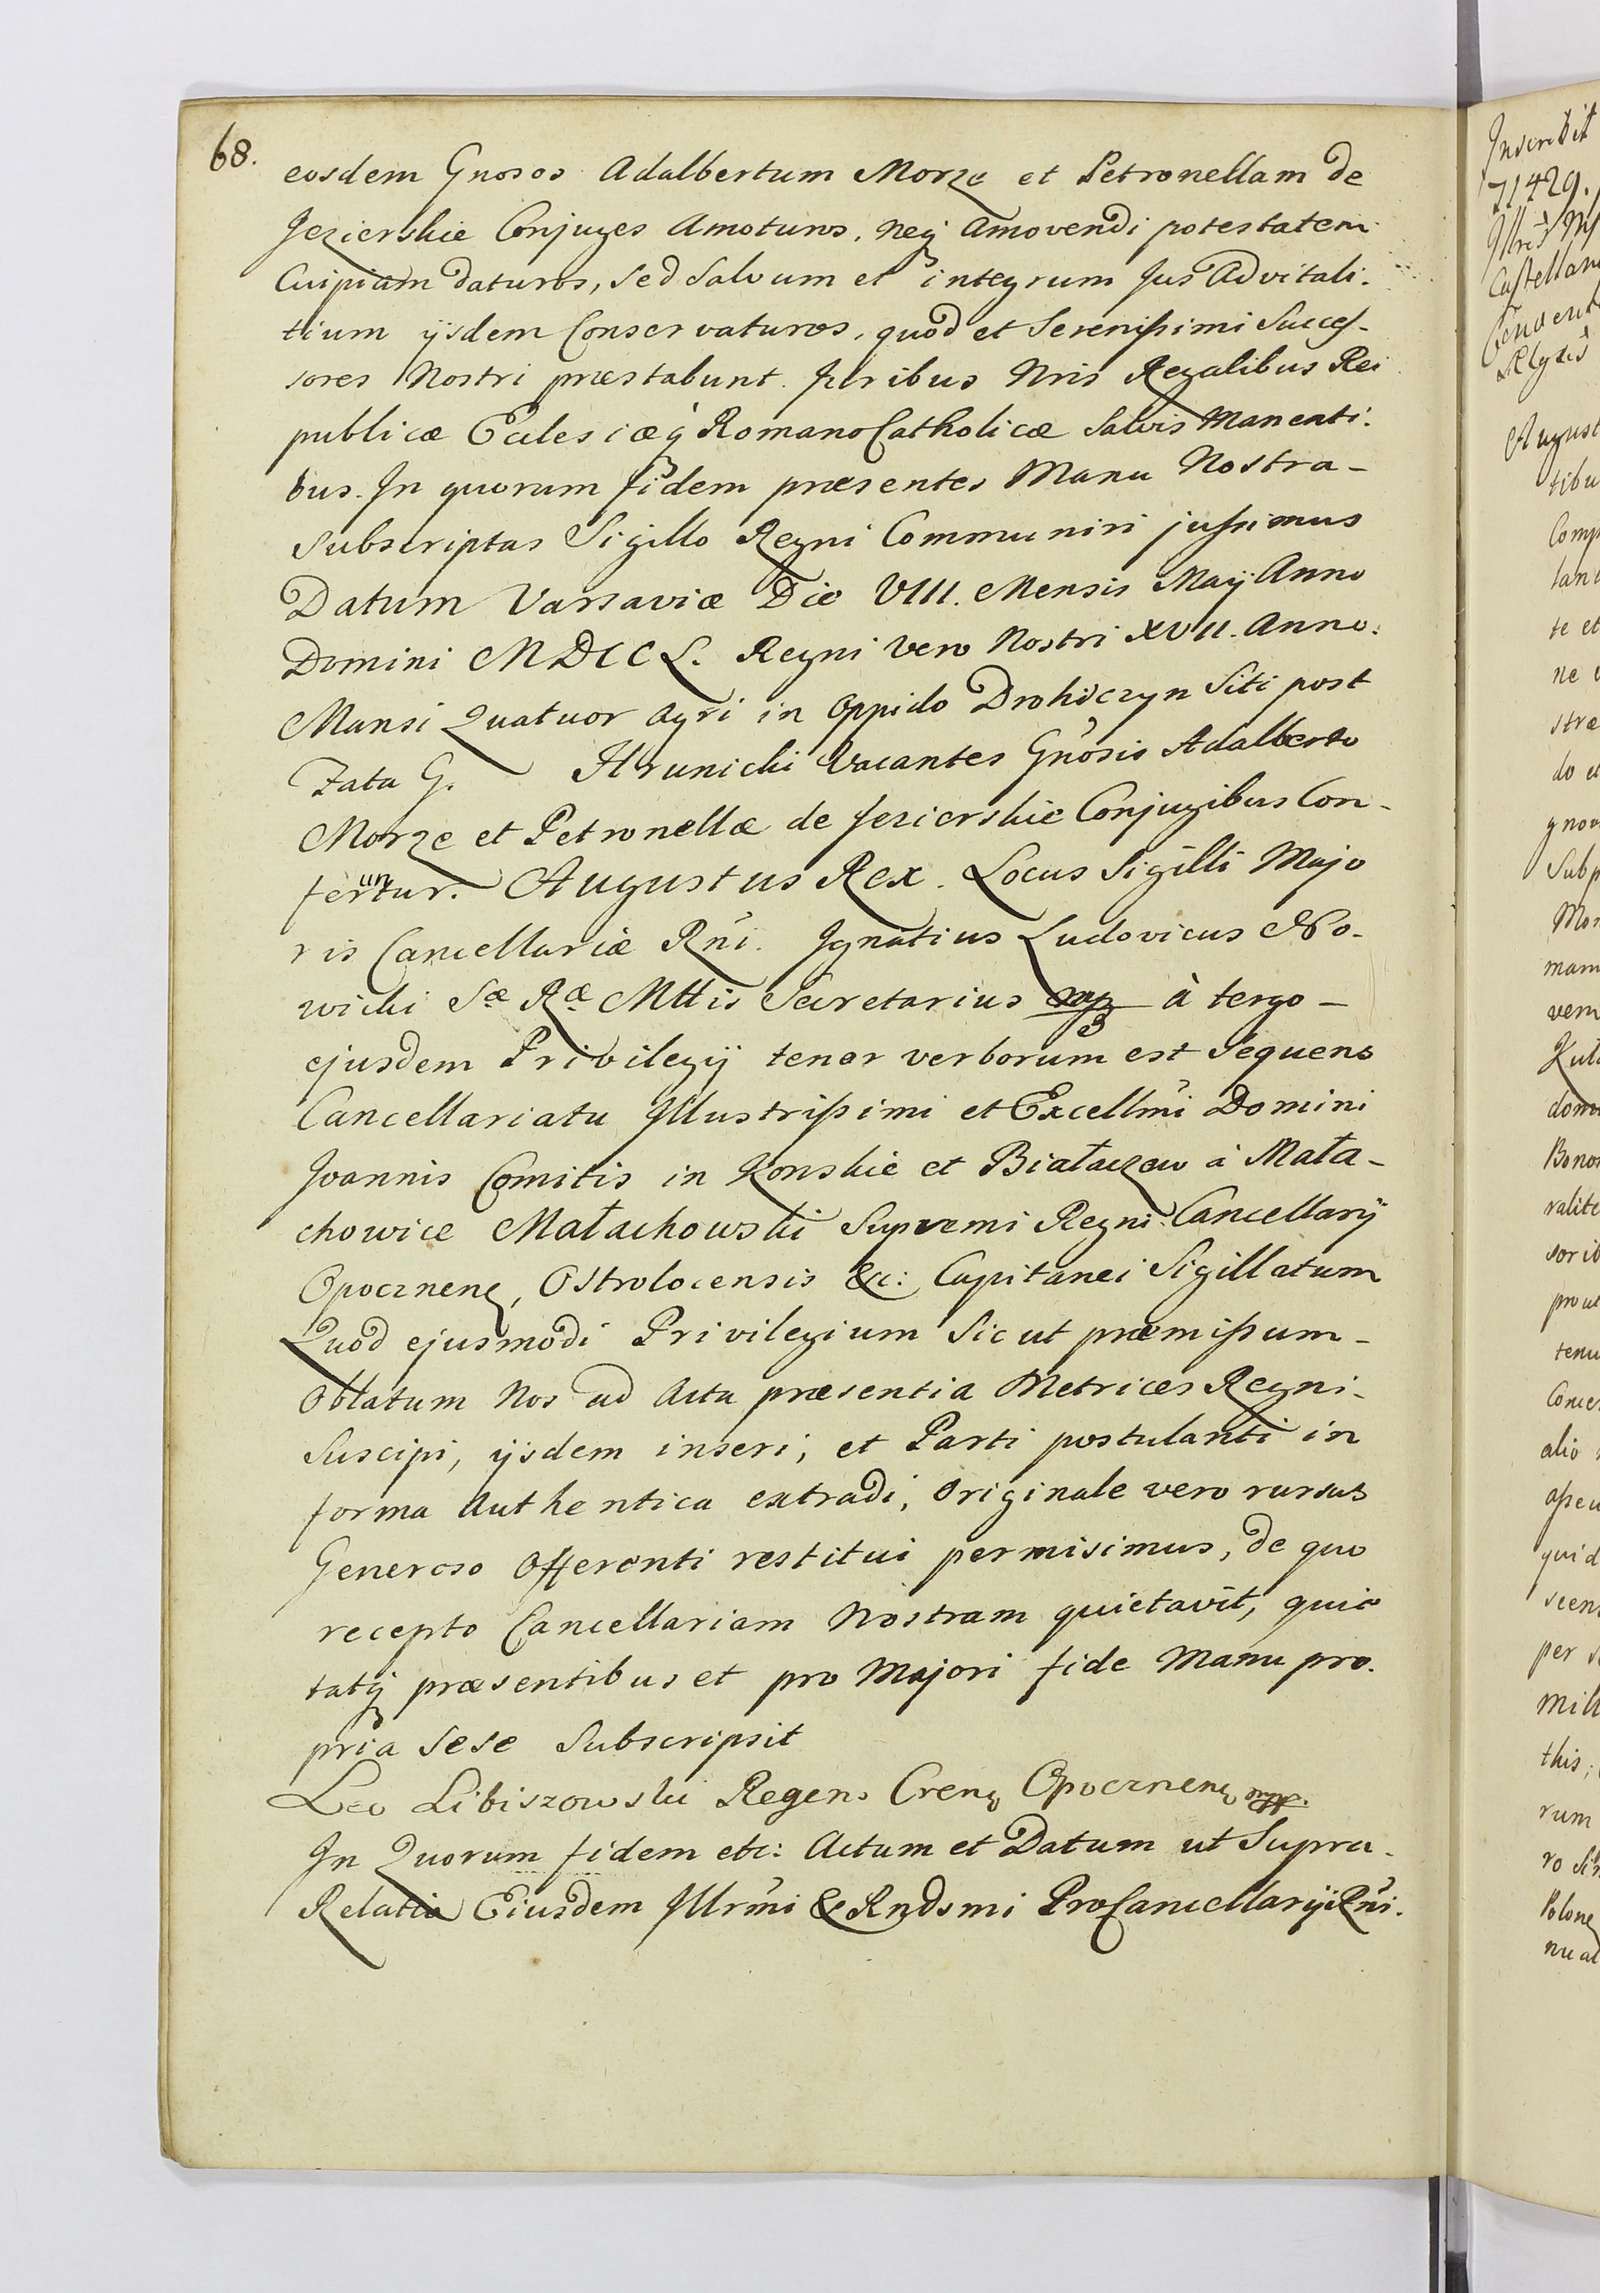 68.
eosdem Gnosos Adalbertum Morze et Petronellam de
Jezierskie Conjuges Amoturos, neq; Amovendi potestatem
Cuipiam daturos, sed Salvum et integrum Jus Advitali-
tium ijsdem Conservaturos, quod et Serenissimi Succes-
sores Nostri præstabunt. Juribus Nris Regalibus Rei
publicæ Ecclesiæq; Romano Catholicæ Salvis Manenti-
bus. In quorum fidem præsentes Manu Nostra-
Subscriptas Sigillo Regni Communiri jussimus
Datum Varsaviæ Die VIII. Mensis Maij Anno
Domini MDCCL. Regni Vero Nostri XVII. Anno.
Mansi Quatuor Agri in Oppido Drohiczyn Siti post
Fata G. Hrunicki Vacantes Gnosis Adalberto
Morze et Petronellæ de Jezierskie Conjugibus Con-
feruntur. Augustus Rex. Locus Sigilli Majo
ris Cancellariæ Rni. Ignatius Ludovicus No-
wicki Sæ Ræ Mttis Secretarius mp à tergo-
ejusdem Privilegij tenor verborum est Sequens
Cancellariatu Illustrissimi et Excellmi Domini
Joannis Comitis in Konskie et Białaczew à Mała-
chowice Małachowski Supremi Regni Cancellarij
Opocznen, Ostrolocensis &c: Capitanei Sigillatum
Quod ejusmodi Privilegium Sicut præmissum-
Oblatum Nos ad Acta præsentia Metrices Regni-
Suscipi, ijsdem inseri, et Parti postulanti in
forma Authentica extradi, Originale vero rursus
Generoso Offerenti restitui permisimus, de quo
recepto Cancellariam Nostram quietavit, quie
tatq; præsentibus et pro Majori fide Manu pro-
pria Sese Subscripsit
Leo Libiszowski Regens Cren Opocznen mp.
In Quorum fidem etc: Actum et Datum ut Supra-
Relatio Eiusdem Illrmi & Rndsmi ProCancellarij Rni.